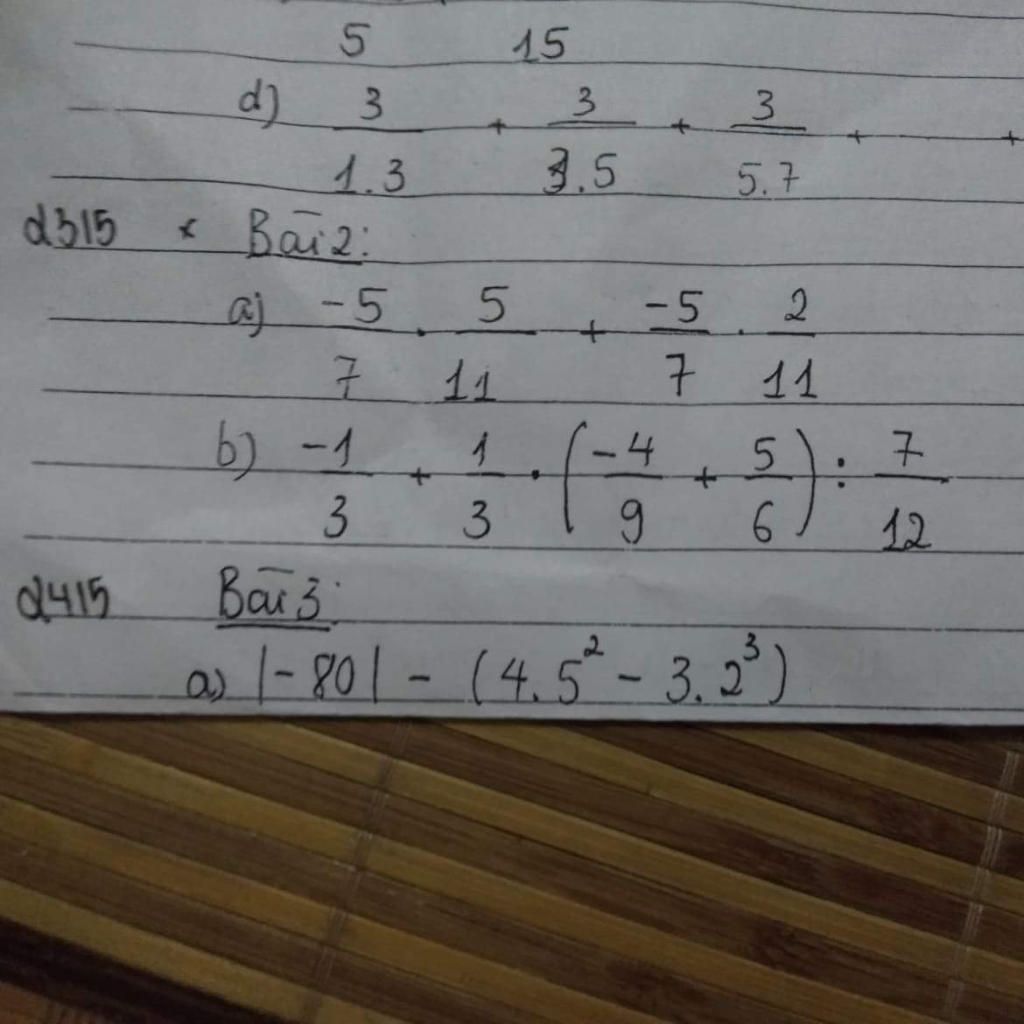 5 15
d) 3/1.3 + 3/3.5 + 3/5.7 + +
2315 * Bài 2:
a) -5/7 . 5/11 + -5/7 . 2/11
b) -1/3 + 1/3 . (-4/9 + 5/6) : 7/12
2415 Bài 3:
a) |-80| - (4.5² - 3.2³)